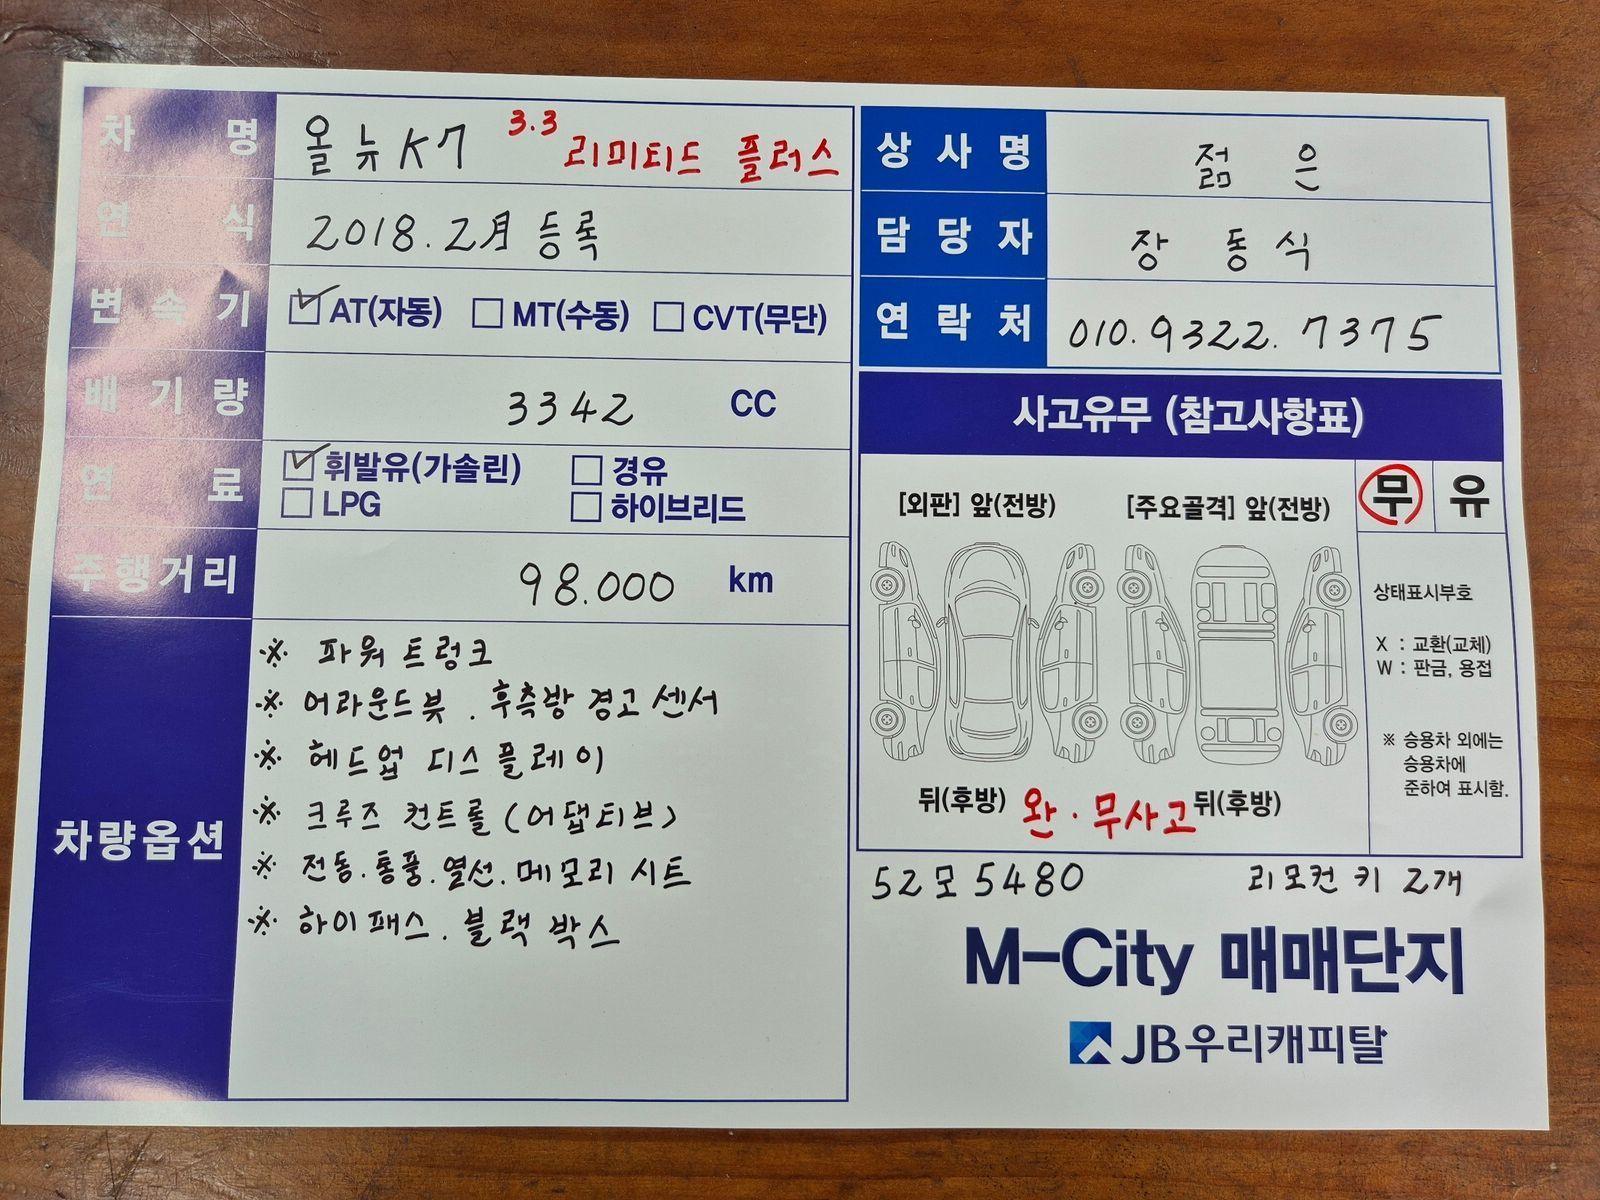 차 명 올뉴K7 3.3 리미티드 플러스
연 식 2018.2月 등록
변 속 기 AT(자동) MT(수동) CVT(무단)
배 기 량 3342 CC
연 료 휘발유(가솔린) 경유
LPG 하이브리드
주행거리 98.000 km
차량옵션
※ 파워트렁크
※ 어라운드뷰. 후측방 경고센서
※ 헤드업 디스플레이
※ 크루즈 컨트롤(어댑티브)
※ 전동.통풍.열선.메모리 시트
※ 하이패스. 블랙박스
상 사 명 젊은
담 당 자 장동식
연 락 처 010.9322.7375
사고유무 (참고사항표)
[외판] 앞(전방) [주요골격] 앞(전방) 무 유
상태표시부호
X : 교환(교체)
W : 판금, 용접
※ 승용차 외에는
승용차에
준하여 표시함.
뒤(후방) 완.무사고 뒤(후방)
52모5480 리모컨 키 2개
M-City 매매단지
JB우리캐피탈